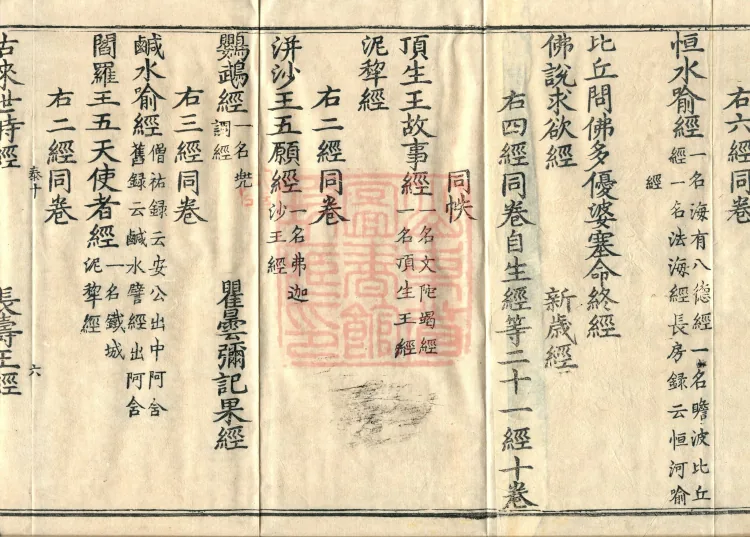 右六經同卷
恒水喻經
一名海有八德經一名瞻波比丘
經一名法海經長房録云恒河喻
經
比丘問佛多優婆塞命終經
佛說求欲經 新歲經
右四經同卷自生經等二十一經十卷
同帙
頂生王故事經
一名文陀竭經
一名頂生王經
泥犂經
右二經同卷
洴沙王五願經
一名弗迦
沙王經
鸚鵡經
一名兜
調經
瞿曇彌記果經
右三經同卷
鹹水喻經
僧祐録云安公出中阿含
舊録云鹹水譬經出阿含
閻羅王五天使者經
一名鐵城
泥犂經
右二經同卷
十 六
古來世時經 長壽王經